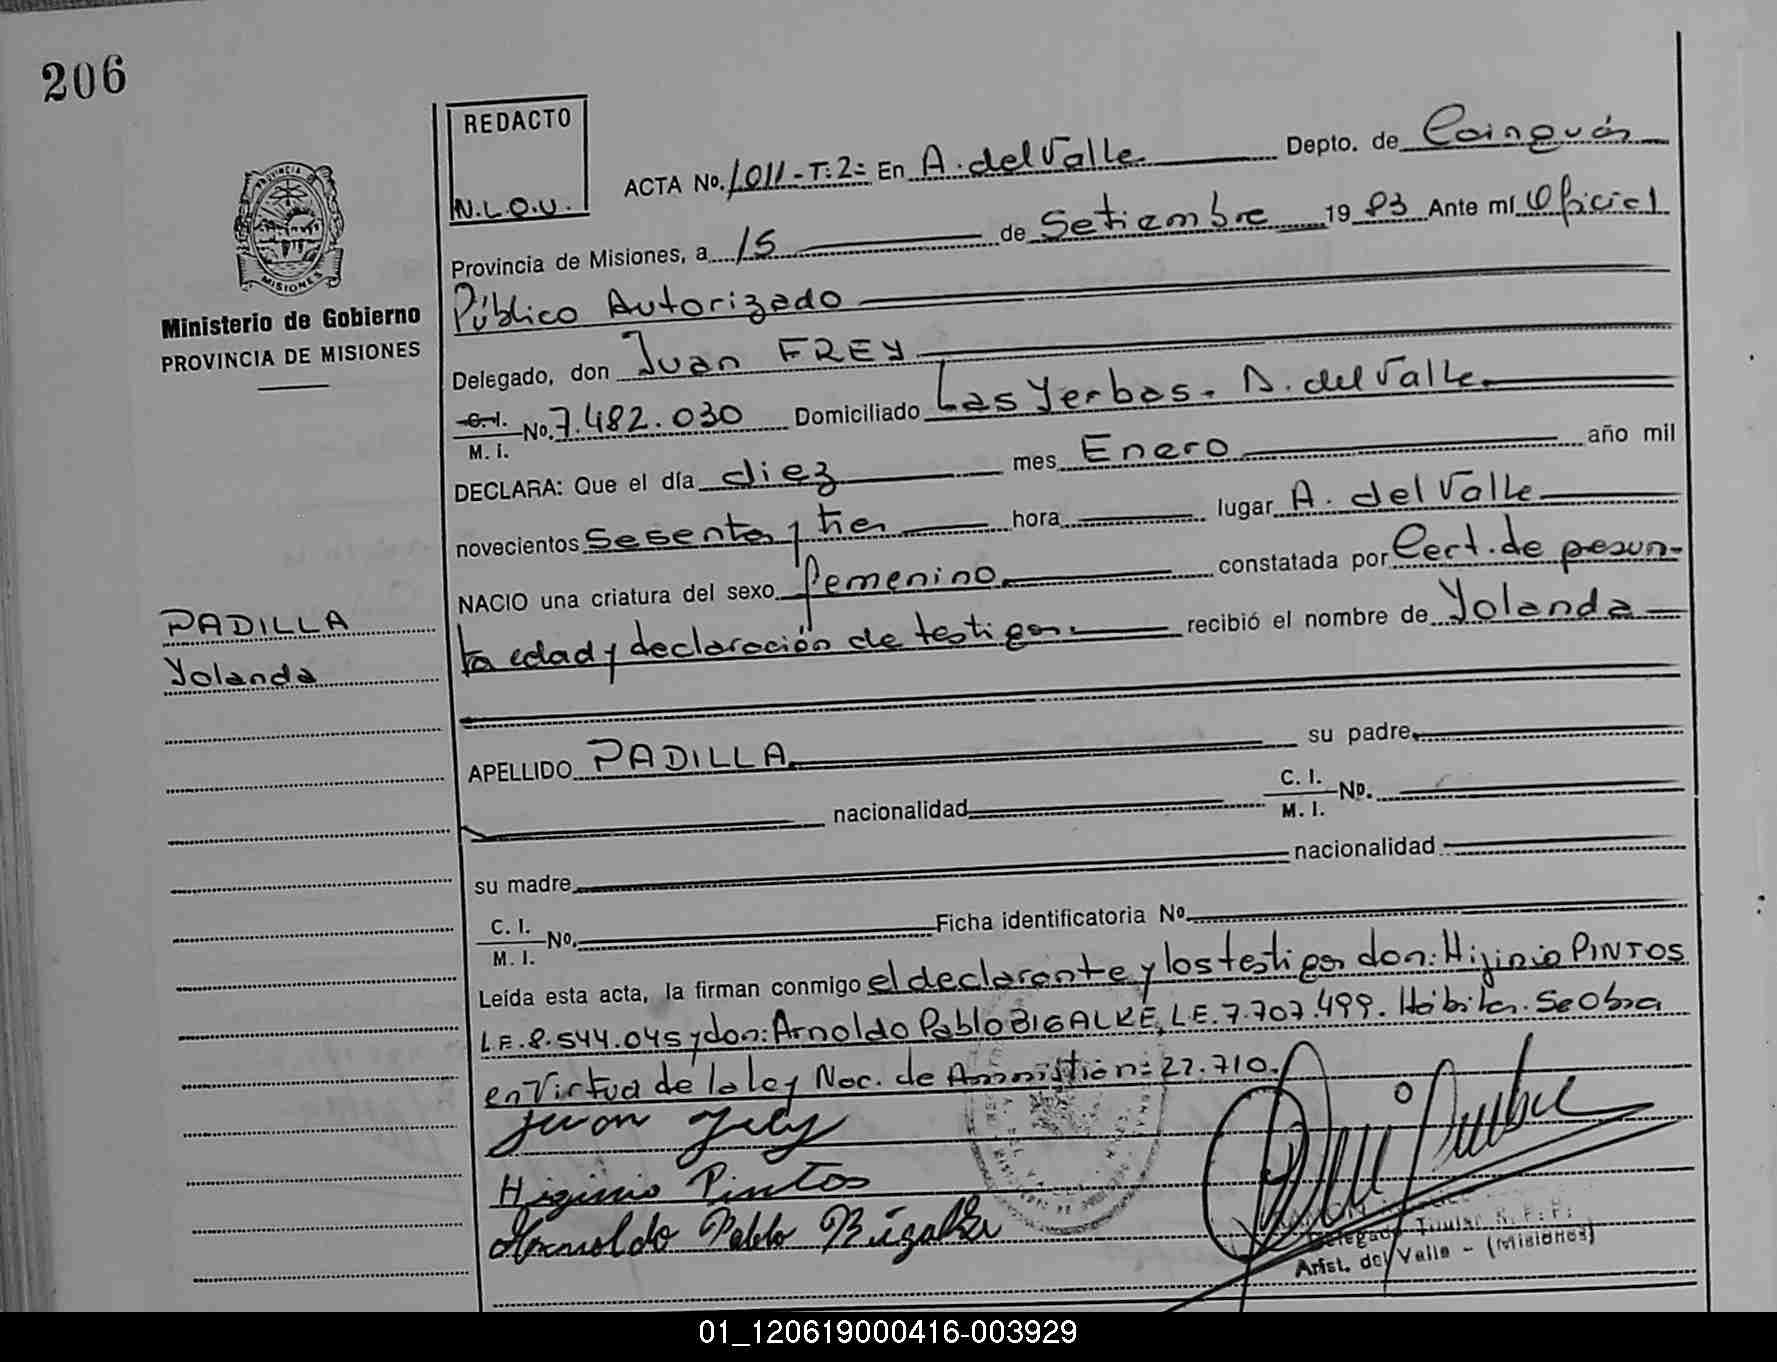 206
REDACTO
N.L.O.U.
ACTA No. 1011-T:2: En A. del Valle Depto. de Cainguás
Provincia de Misiones, a 15 de Setiembre 1983 Ante mí Oficial
Público Autorizado
MISIONES
Ministerio de Gobierno
PROVINCIA DE MISIONES
Delegado, don Juan FREY
C.I. M. I. No. 7.482.030 Domiciliado Las Yerbas. A. del Valle
DECLARA: Que el día diez mes Enero año mil
novecientos Sesenta y tres hora lugar A. del Valle
NACIO una criatura del sexo femenino constatada por Cert. de presun-
ta edad y declaración de testigos recibió el nombre de Yolanda
PADILLA
Yolanda
APELLIDO PADILLA su padre
nacionalidad C. I. M. I. No.
su madre nacionalidad
C. I. M. I. No. Ficha identificatoria No
Leída esta acta, la firman conmigo el declarante y los testigos don: Higinio PINTOS
L.E. 8.544.045 y don: Arnoldo Pablo BIGALKE, L.E. 7.707.499. Hábiles. Se Obra
en Virtud de la ley Nac. de Amnistión: 22.710.
Juan Frey
Higinio Pintos
Arnoldo Pablo Bigalke
Delegado Titular R. P. P.
Arist. del Valle - (Misiones)
01_120619000416-003929